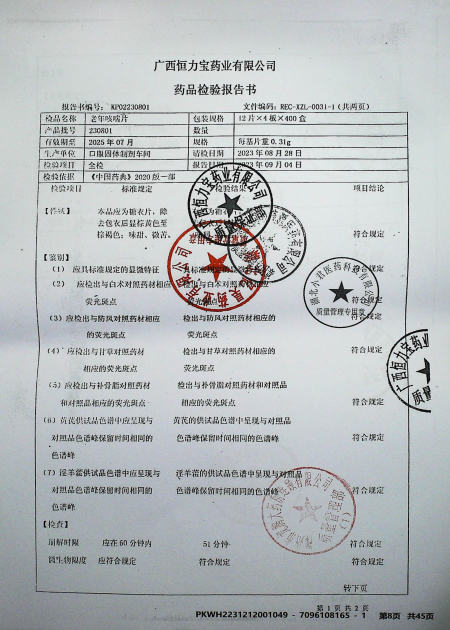 广西恒力宝药业有限公司
药品检验报告书
报告书编号: KP02230801 文件编码: REC-XZL-0031-1 (共两页)
检品名称 老年咳喘片 包装规格 12片×4板×400盒
产品批号 230801 数量
有效期至 2025年07月 规格 每基片重0.31g
生产单位 口服固体制剂车间 请检日期 2023年08月28日
检验项目 全检 报告日期 2023年09月04日
检验依据 《中国药典》2020版一部
检验项目 标准规定 检验结果 项目结论
【性状】 本品应为糖衣片, 除
去包衣后显棕黄色至
棕褐色; 味甜、微苦。 符合规定
【鉴别】
(1) 应具标准规定的显微特征 具标准规定的显微特征 符合规定
(2) 应检出与白术对照药材相应的 检出与白术对照药材相应的
荧光斑点 荧光斑点
(3) 应检出与防风对照药材相应的 检出与防风对照药材相应的
的荧光斑点 荧光斑点 符合规定
(4) 应检出与甘草对照药材 检出与甘草对照药材相应的
相应的荧光斑点 荧光斑点 符合规定
(5) 应检出与补骨脂对照药材 检出与补骨脂对照药材和对照品
和对照品相应的荧光斑点 相应的荧光斑点 符合规定
(6) 黄芪供试品色谱中应呈现与 黄芪的供试品色谱中呈现与对照品
对照品色谱峰保留时间相同的 色谱峰保留时间相同的色谱峰 符合规定
色谱峰
(7) 淫羊藿供试品色谱中应呈现与 淫羊藿的供试品色谱中呈现与对照品
对照品色谱峰保留时间相同的 色谱峰保留时间相同的色谱峰 符合规定
色谱峰
【检查】
崩解时限 应在60分钟内 51分钟 符合规定
微生物限度 应符合规定 符合规定 符合规定
转下页
第1页共2页
PKWH2231212001049 - 7096108165 - 1 第8页 共45页
广西恒力宝药业有限公司
质量管理专用章